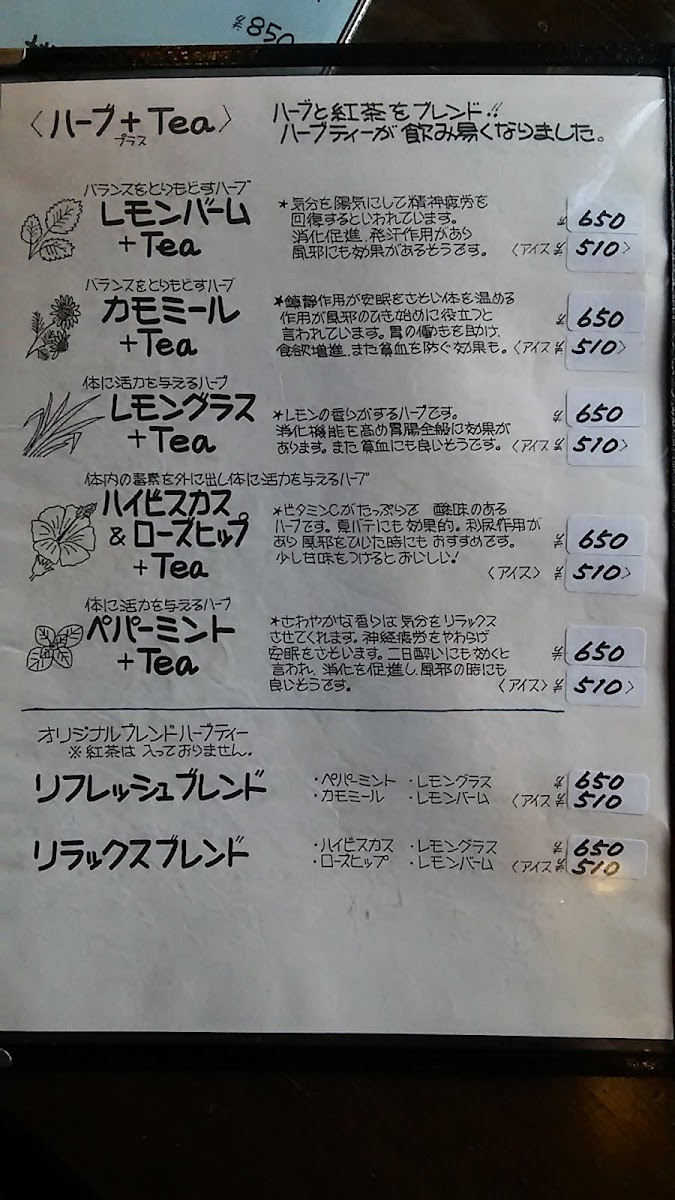 ¥850
〈ハーブ+Tea〉
プラス
ハーブと紅茶をブレンド!!
ハーブティーが飲み易くなりました。
バランスをとりもどすハーブ
レモンバーム
+Tea
*気分を陽気にして精神疲労を
回復するといわれています。
消化促進、発汗作用があり
風邪にも効果があるそうです。
¥650
〈アイス ¥510〉
バランスをとりもどすハーブ
カモミール
+Tea
*鎮静作用が安眠をさそい体を温める
作用が風邪のひき始めに役立つと
言われています。胃の働きを助け、
食欲増進、また貧血を防ぐ効果も。
¥650
〈アイス ¥510〉
体に活力を与えるハーブ
レモングラス
+Tea
*レモンの香りがするハーブです。
消化機能を高め胃腸全般に効果が
あります。また貧血にも良いそうです。
¥650
〈アイス ¥510〉
体内の毒素を外に出し体に活力を与えるハーブ
ハイビスカス
&ローズヒップ
+Tea
*ビタミンCがたっぷりで 酸味のある
ハーブです。夏バテにも効果的。利尿作用が
あり風邪をひいた時にもおすすめです。
少し甘味をつけるとおいしい!
¥650
〈アイス〉 ¥510〉
体に活力を与えるハーブ
ペパーミント
+Tea
*さわやかな香りは気分をリラックス
させてくれます。神経疲労をやわらげ
安眠をさそいます。二日酔いにも効くと
言われ、消化を促進し、風邪の時にも
良いそうです。
¥650
〈アイス〉 ¥510〉
オリジナルブレンドハーブティー
※紅茶は入っておりません。
リフレッシュブレンド
・ペパーミント ・レモングラス
・カモミール ・レモンバーム
¥650
〈アイス ¥510
リラックスブレンド
・ハイビスカス ・レモングラス
・ローズヒップ ・レモンバーム
¥650
〈アイス ¥510